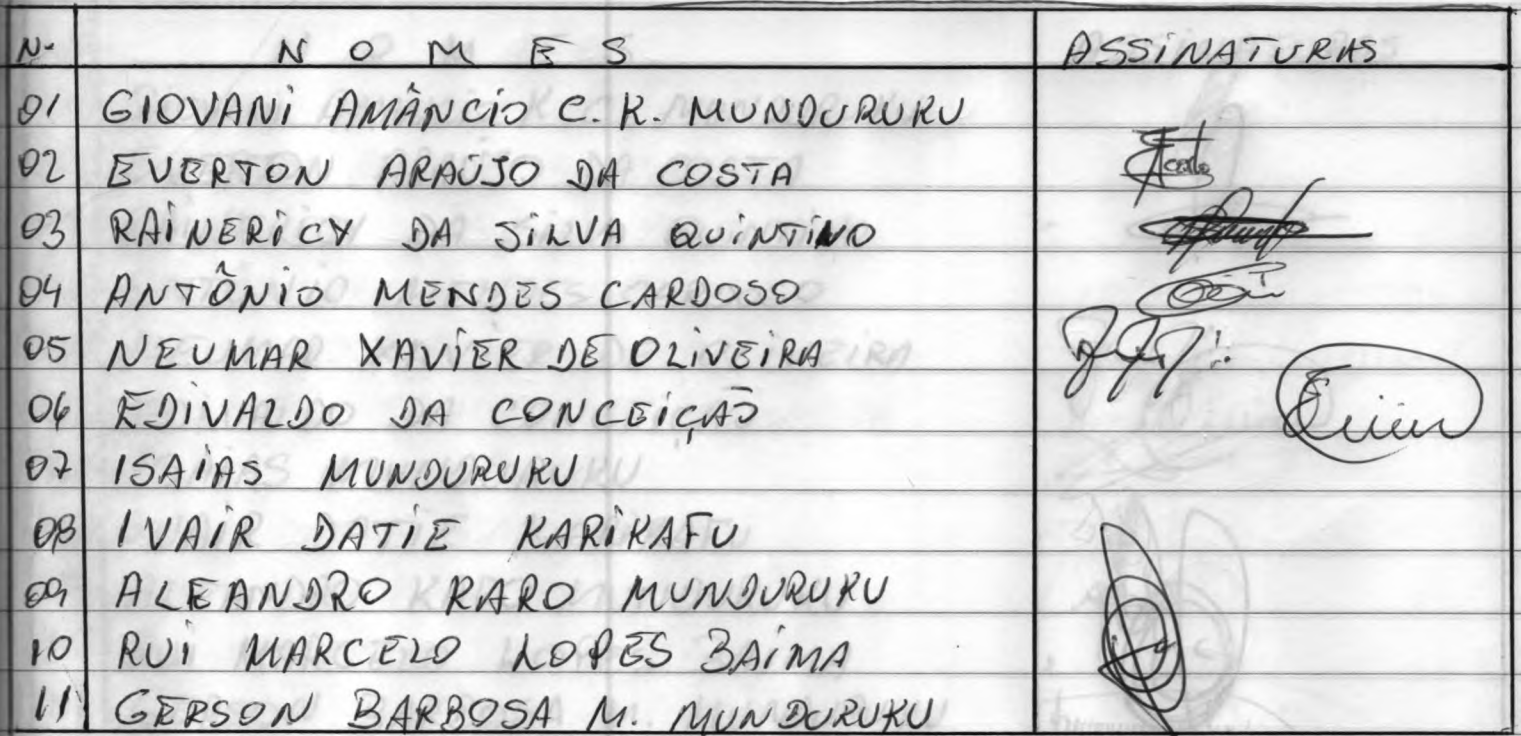 N. NOMES ASSINATURAS
01 GIOVANI AMÂNCIO C. K. MUNDURUKU
02 EVERTON ARAÚJO DA COSTA
03 RAINERICY DA SILVA QUINTINO
04 ANTÔNIO MENDES CARDOSO
05 NEUMAR XAVIER DE OLIVEIRA
06 EDIVALDO DA CONCEIÇÃO
07 ISAIAS MUNDURUKU
08 IVAIR DATIE KARIKAFU
09 ALEANDRO KARO MUNDURUKU
10 RUI MARCELO LOPES BAIMA
11 GERSON BARBOSA M. MUNDURUKU